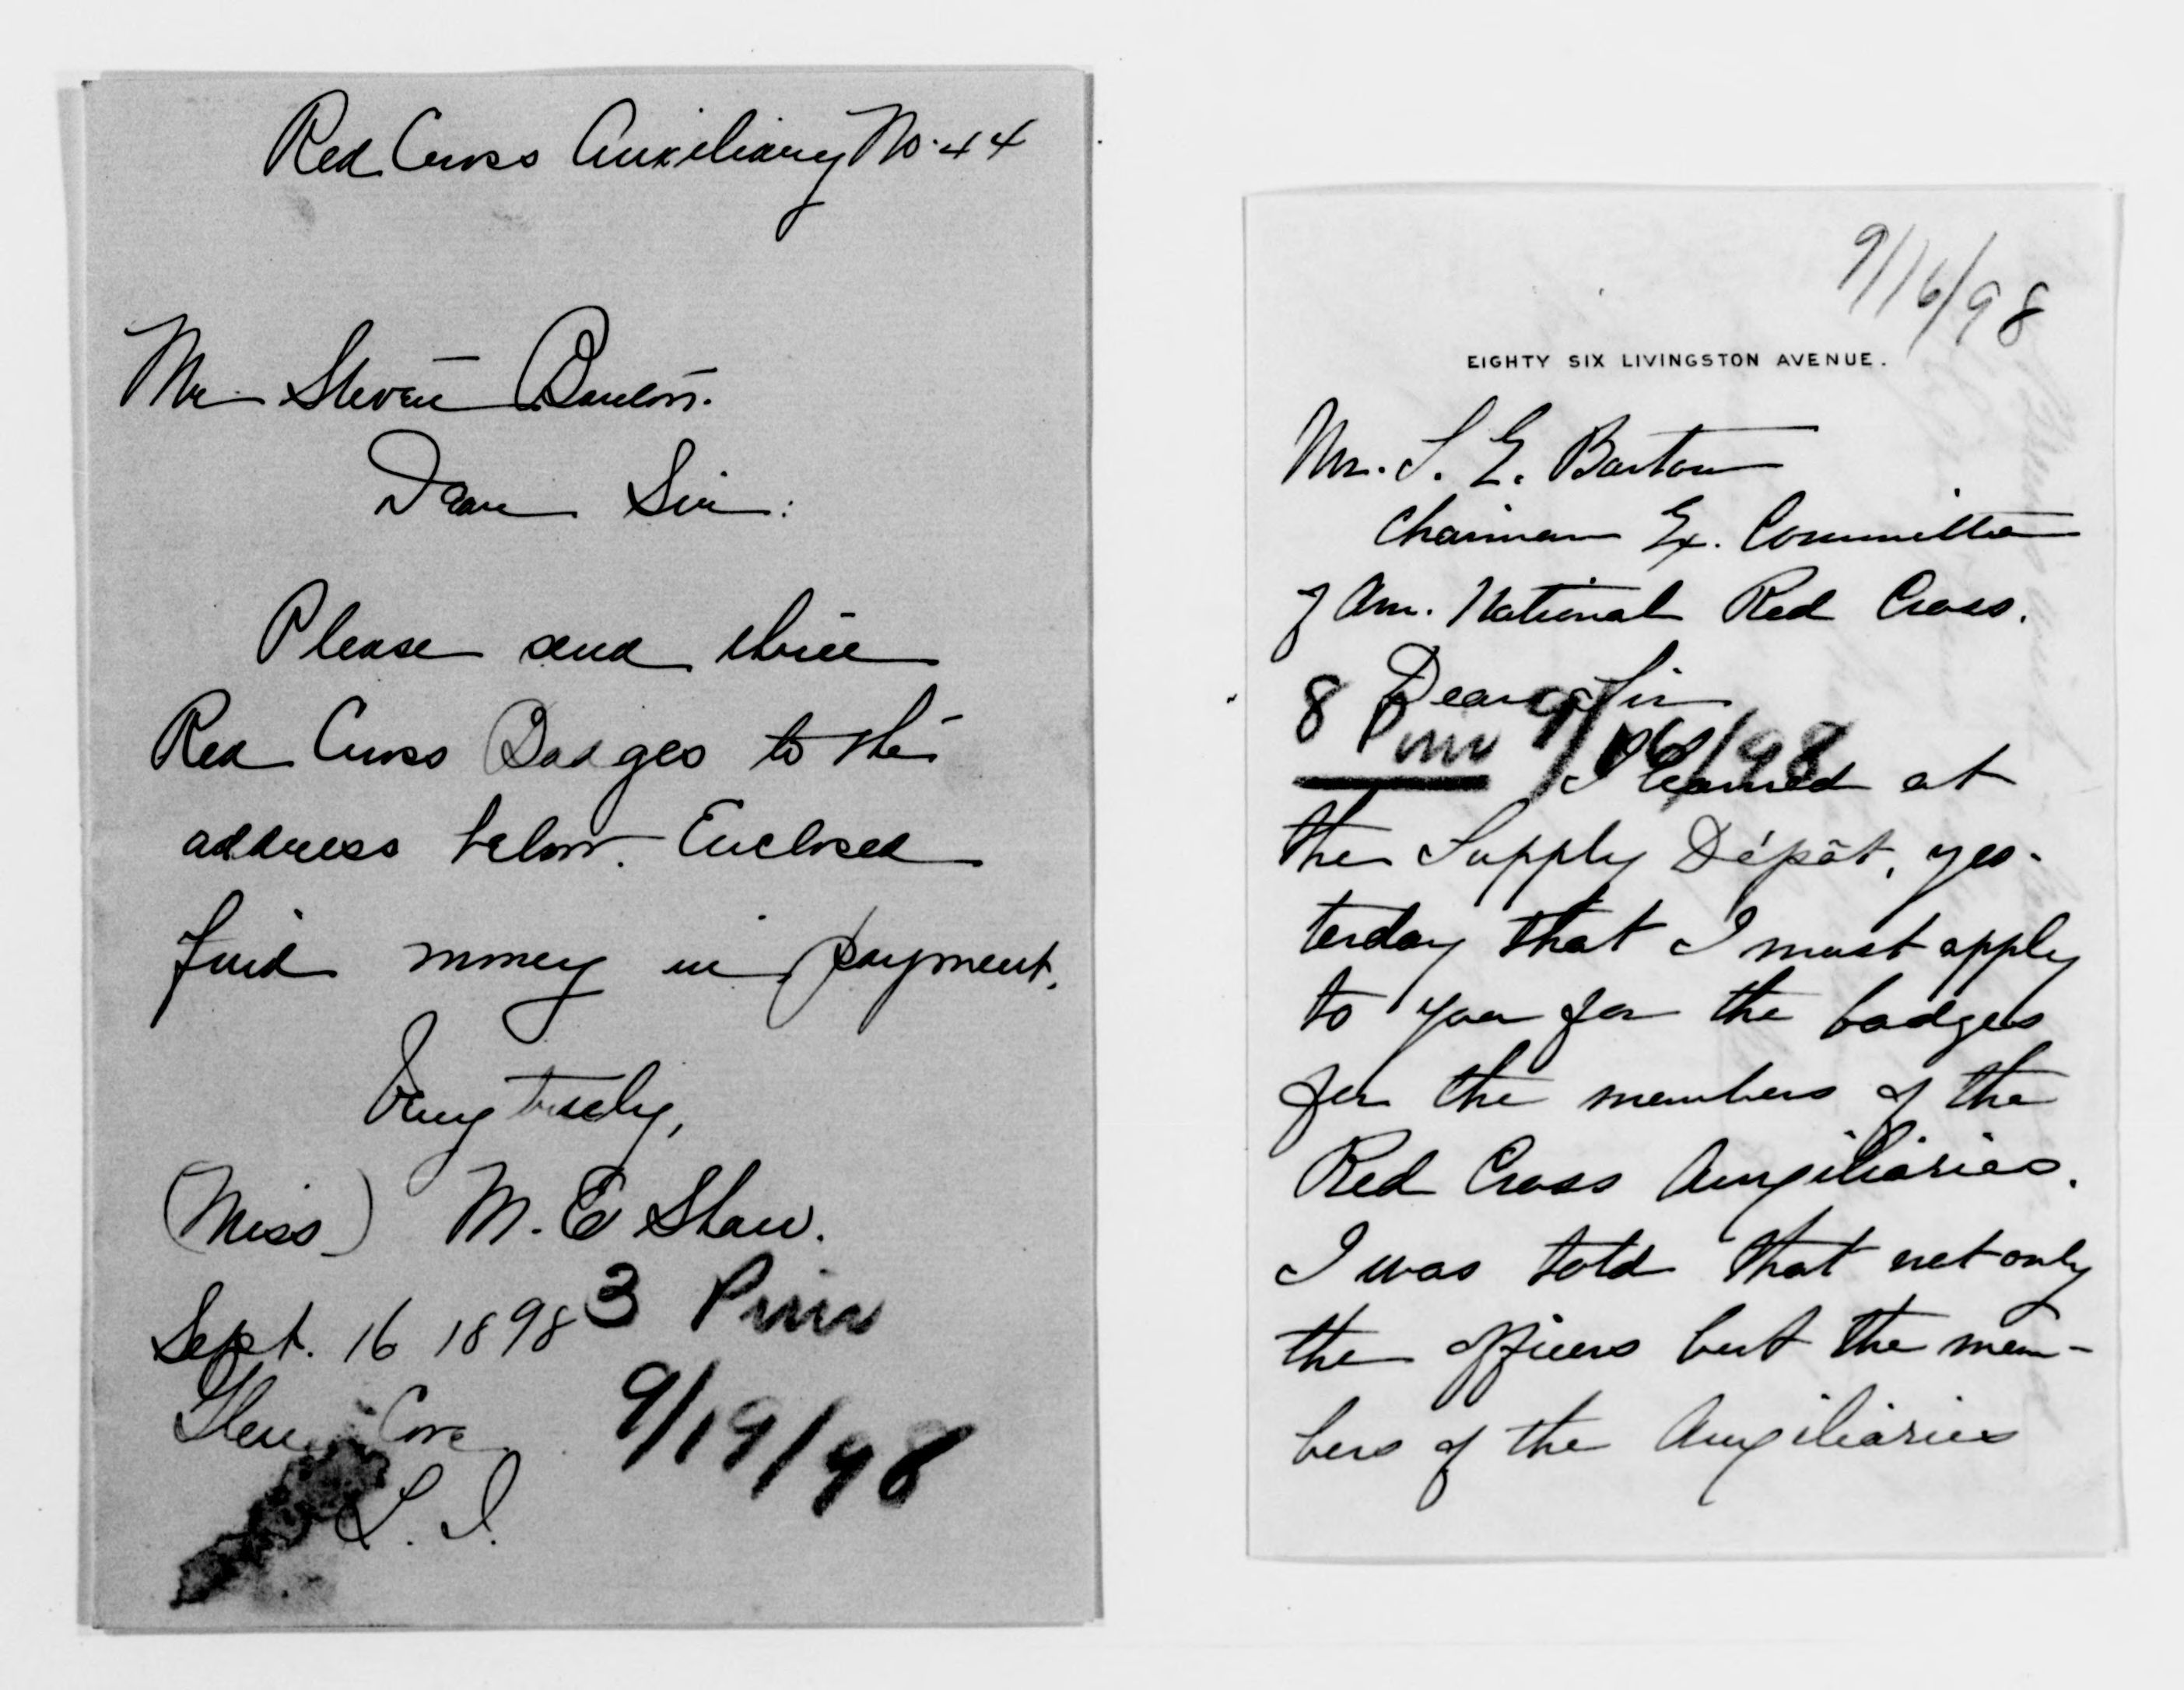 Red Cross Auxiliary No. 44
Mr Steven Barton.
Dear Sir:
Please send three
Red Cross Badges to the
address below. Enclosed
find money in payment.
Very truly,
(Miss) M. E Shaw.
Sept. 16 1898
Glen Cove
L. I.
3 Pins
9/19/98
9/16/98
EIGHTY SIX LIVINGSTON AVENUE.
Mr. S. E. Barton
Chairman Ex. Committee
of Am. National Red Cross.
Dear Sir
8 Pins 9/16/98
I learned at
the Supply Dépôt, yes-
terday that I must apply
to you for the badges
for the members of the
Red Cross Auxiliaries.
I was told that not only
the officers but the mem-
bers of the Auxiliaries